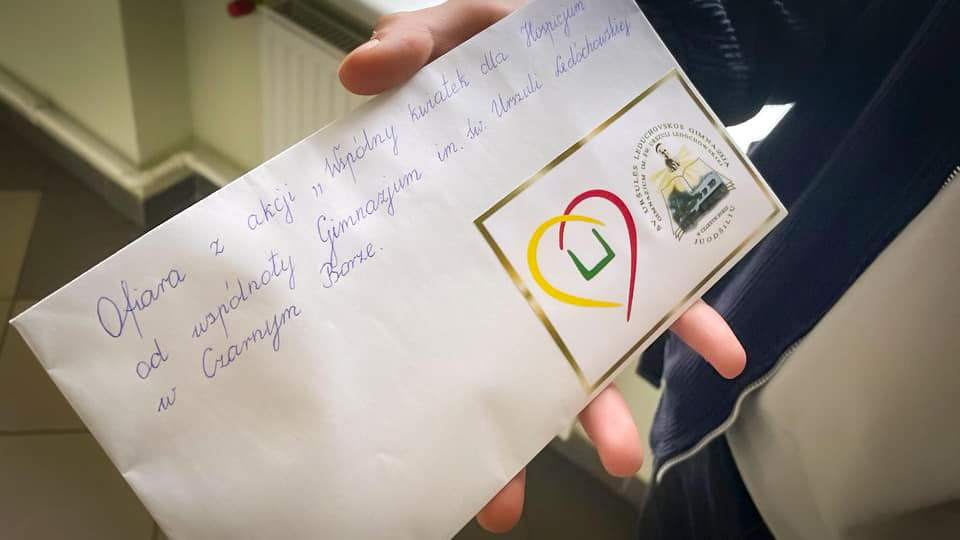 Ofiara z akcji „Wspólny kwiatek dla Hospicjum
od wspólnoty Gimnazjum im. św. Urszuli Ledóchowskiej
w Czarnym Borze.
ŠV. URŠULĖS LEDUCHOVSKOS GIMNAZIJA
GIMNAZJUM IM. ŚW. URSZULI LEDÓCHOWSKIEJ
W CZARNYM BORZE
JUODŠILIŲ